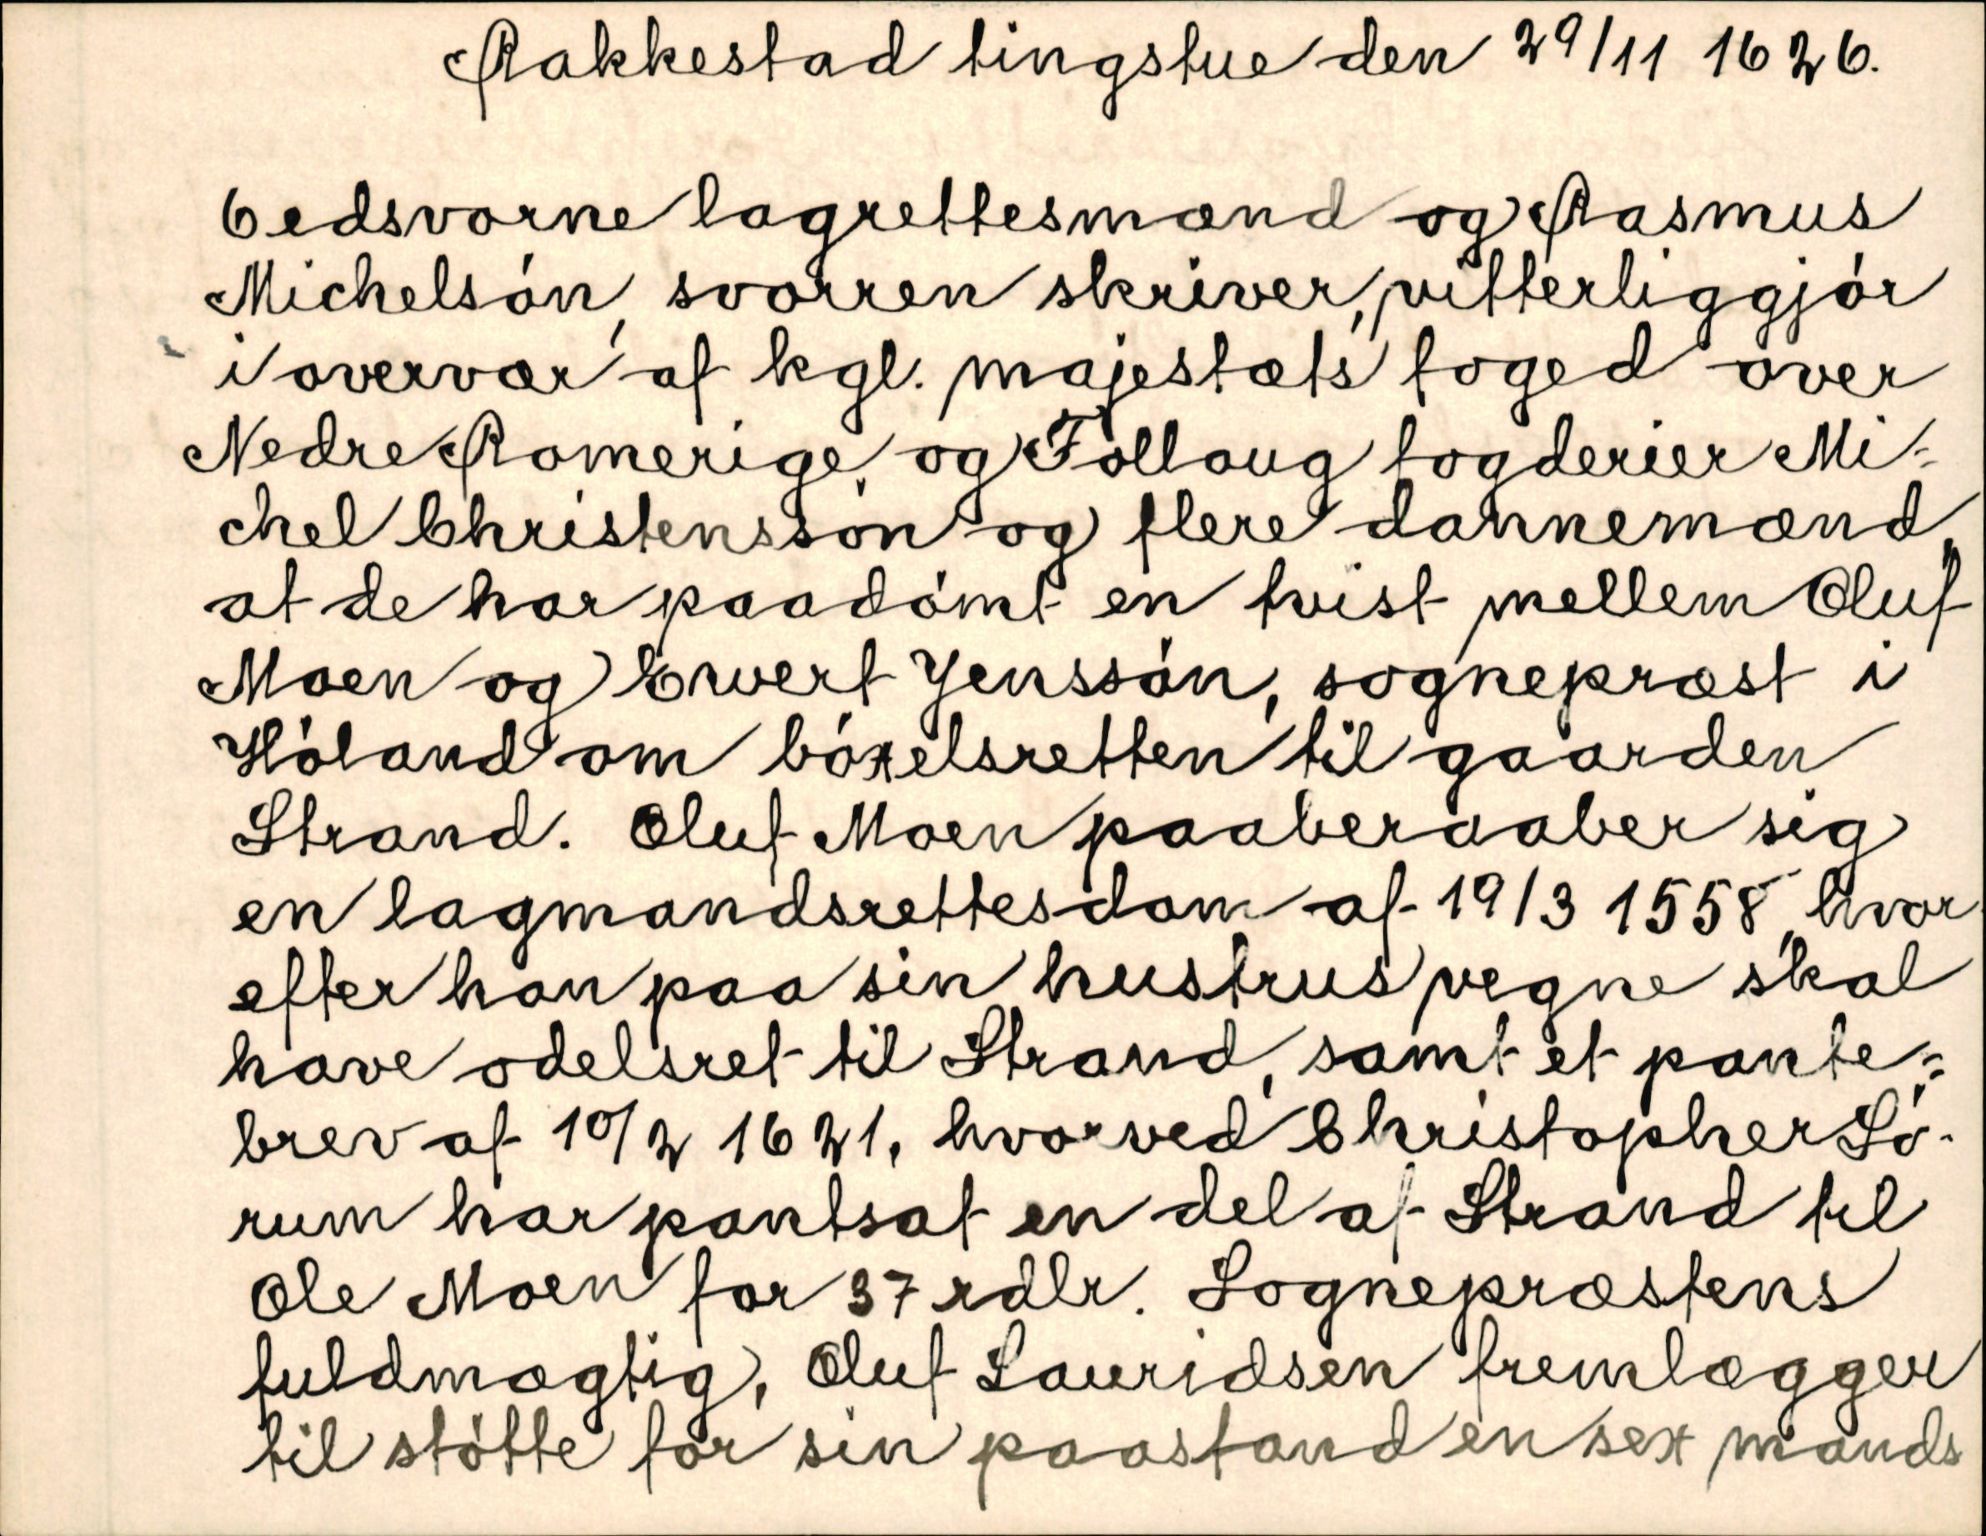 Rakkestad tingstue den 29/11 1626.
6 edsvorne lagrettesmænd og Rasmus
Michelsón, svorren skriver, vitterliggjór
i overvær af kgl. majestæts foged over
Nedre Romerige og Folloug fogderier Mi=
chel Christenssón og flere dannemænd,
at de har paadómt en tvist mellem Oluf
Moen og Ewert Jenssón, sognepræst i
Hóland om bóxelsretten til gaarden
Strand. Oluf Moen paaberaaber sig
en lagmandsrettesdom af 19/3 1558, hvor
efter han paa sin hustrus vegne skal
have odelsret til Strand, samt et pante=
brev af 10/2 1621, hvorved Christopher Só-
rum har pantsat en del af Strand til
Ole Moen for 37 rdlr. Sognepræstens
fuldmægtig, Oluf Lauridsen fremlægger
til stótte for sin paastand en sex mands